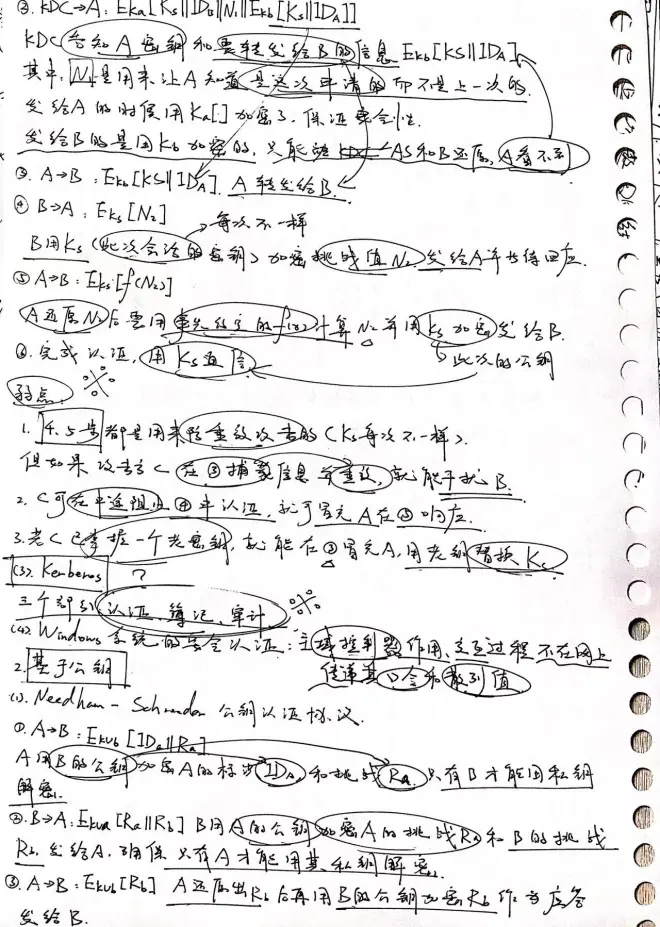 ②. KDC→A: EKa[Ks||IDB||N1||EKb[Ks||IDA]]
KDC告知A密钥和要转发给B的信息EKb[KS||IDA]
其中, N1是用来让A知道是这次申请的而不是上一次的.
发给A的时候用Ka[.]加密了, 保证安全性.
发给B的是用Kb加密的, 只能被KDC AS和B还原, A看不到
③. A→B: EKb[KS||IDA]. A转发给B.
④ B→A: EKs[N2] 每次不一样
B用Ks(此次会话的密钥)加密挑战值N2, 发给A并等待回应.
⑤ A→B: EKs[f(N2)]
A还原N2后要用事先约定的f(x)计算N2并用Ks加密发给B.
⑥. 完成认证, 用Ks通信 此次的公钥
弱点.
1. 4.5步都是用来防重放攻击的(Ks每次不一样).
但如果攻击者C在③捕获信息并重放, 就能干扰B.
2. C可在中途阻止④中认证, 就可冒充A在⑤响应.
3. 若C已掌握一个老密钥, 就能在③冒充A, 用老钥替换Ks
(3). Kerberos ?
三个部分 认证、簿记、审计
(4) Windows系统的安全认证: 主域控制器作用, 交互过程不在网上
传递其口令和散列值
2. 基于公钥
(1). Needham - Schroeder 公钥认证协议.
①. A→B: EKUb[IDa||Ra]
A用B的公钥加密A的标步IDA和挑战Ra. 只有B才能用私钥
解密.
②. B→A: EKUa[Ra||Rb] B用A的公钥加密A的挑战Ra和B的挑战
Rb. 发给A, 确保只有A才能用其私钥解密.
③. A→B: EKUb[Rb] A还原出Rb后再用B的公钥加密Rb作为应答
发给B.